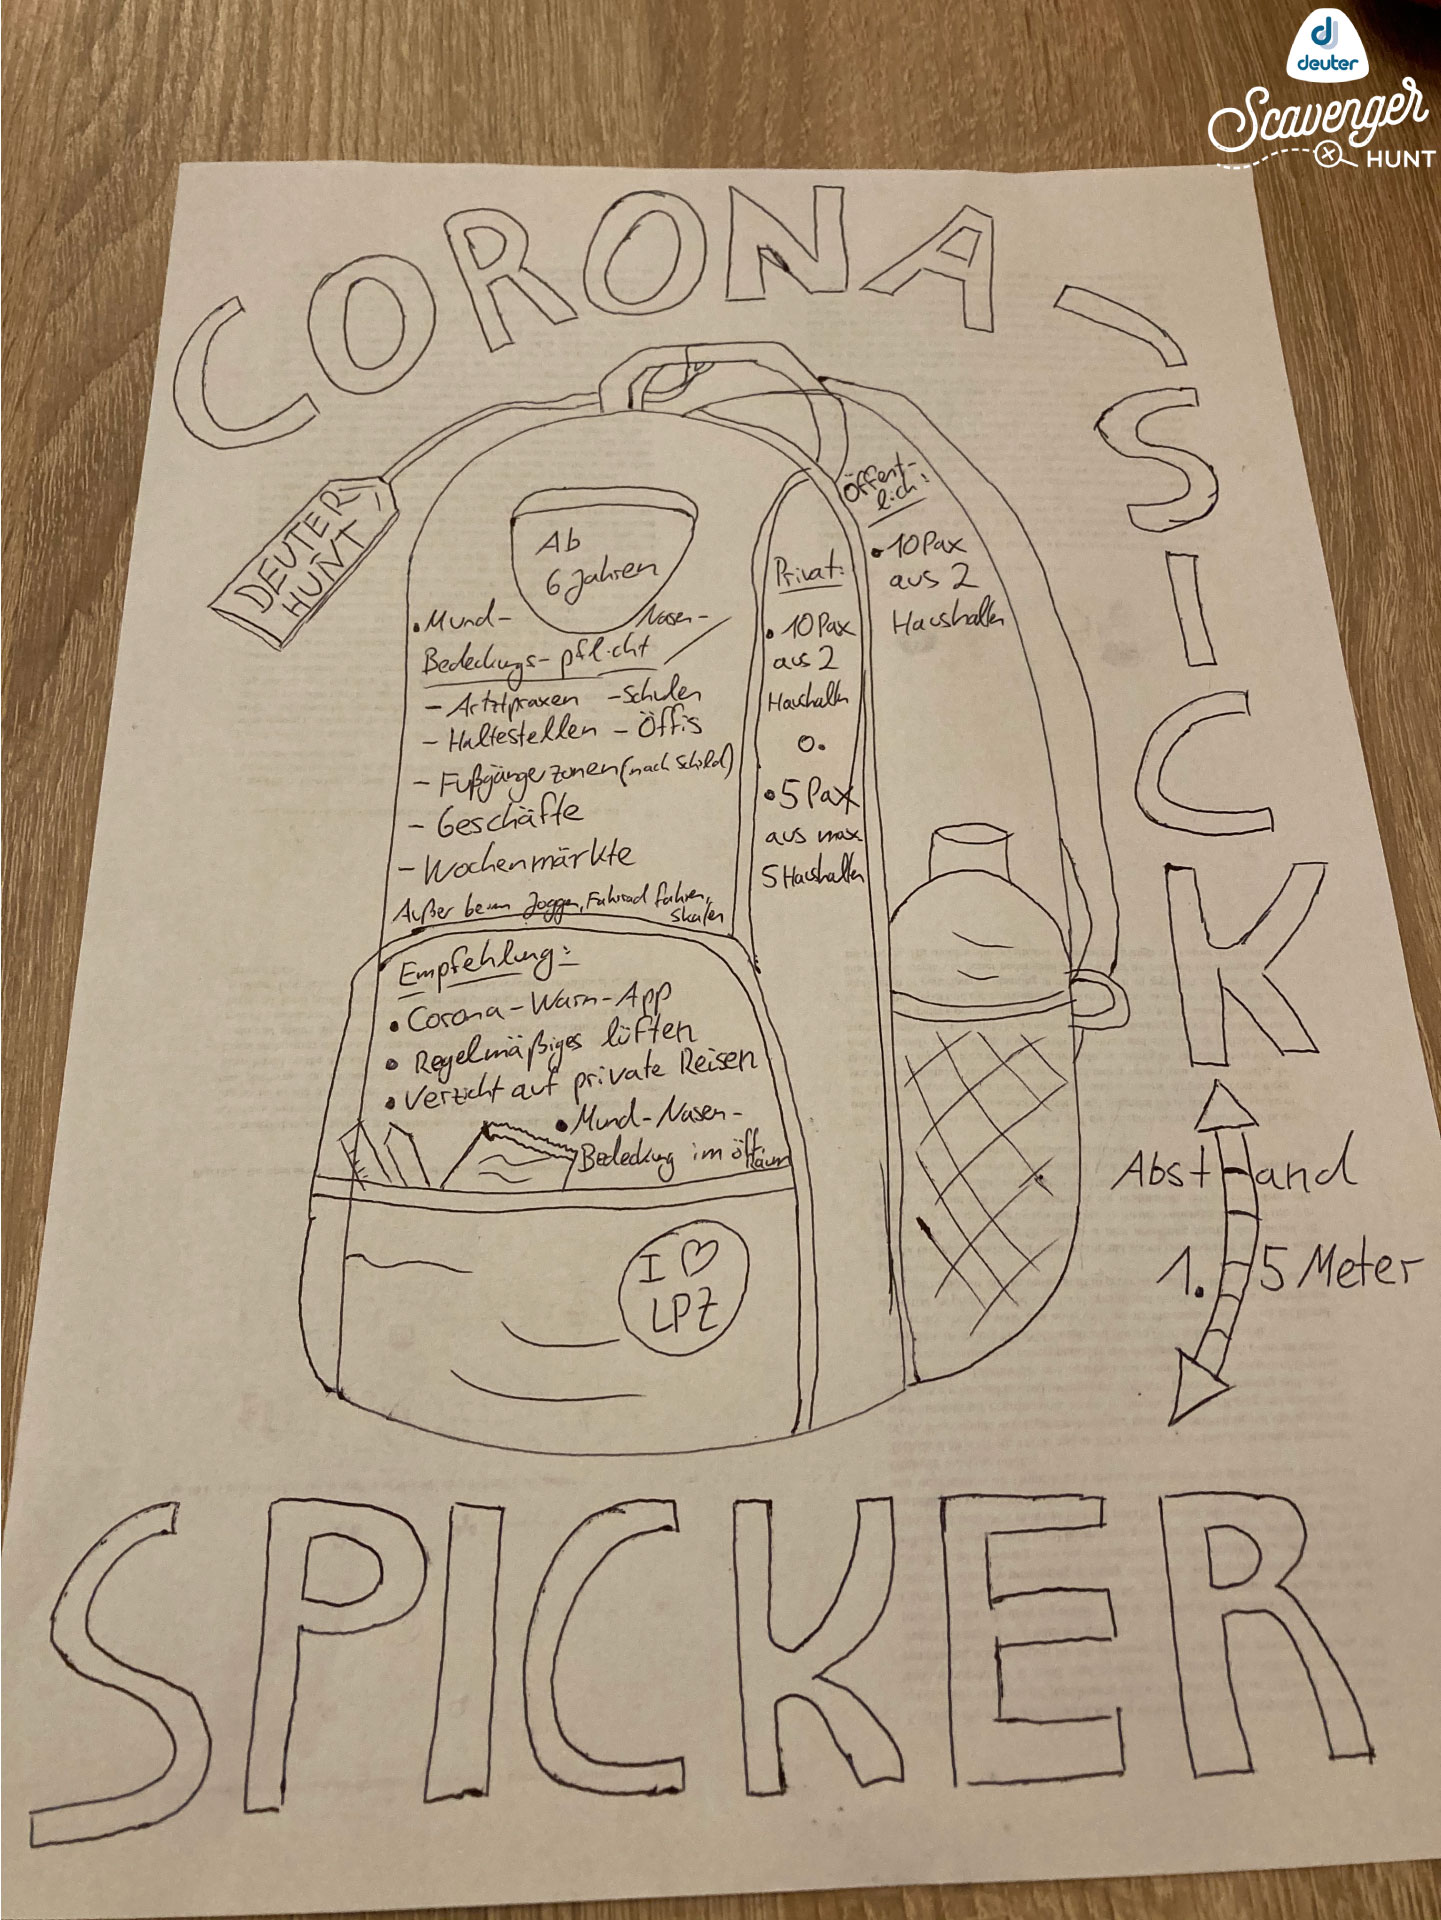 deuter
Scavenger
HUNT
CORONA-
SICK
DEUTER
HUNT
Ab
6 Jahren
• Mund- Nasen-
Bedeckungs-pflicht
- Artztpraxen - Schulen
- Haltestellen - Öffis
- Fußgängerzonen (nach Schild)
- Geschäfte
- Wochenmärkte
Außer beim Joggen, Fahrrad fahren,
skaten
Privat:
• 10 Pax
aus 2
Haushalten
o.
• 5 Pax
aus max.
5 Haushalten
Öffent-
lich:
• 10 Pax
aus 2
Haushalten
Empfehlung:
• Corona-Warn-App
• Regelmäßiges lüften
• Verzicht auf private Reisen
• Mund-Nasen-
Bedeckung im öfftl.
Raum
I ♡
LPZ
Abstand
1.5 Meter
SPICKER